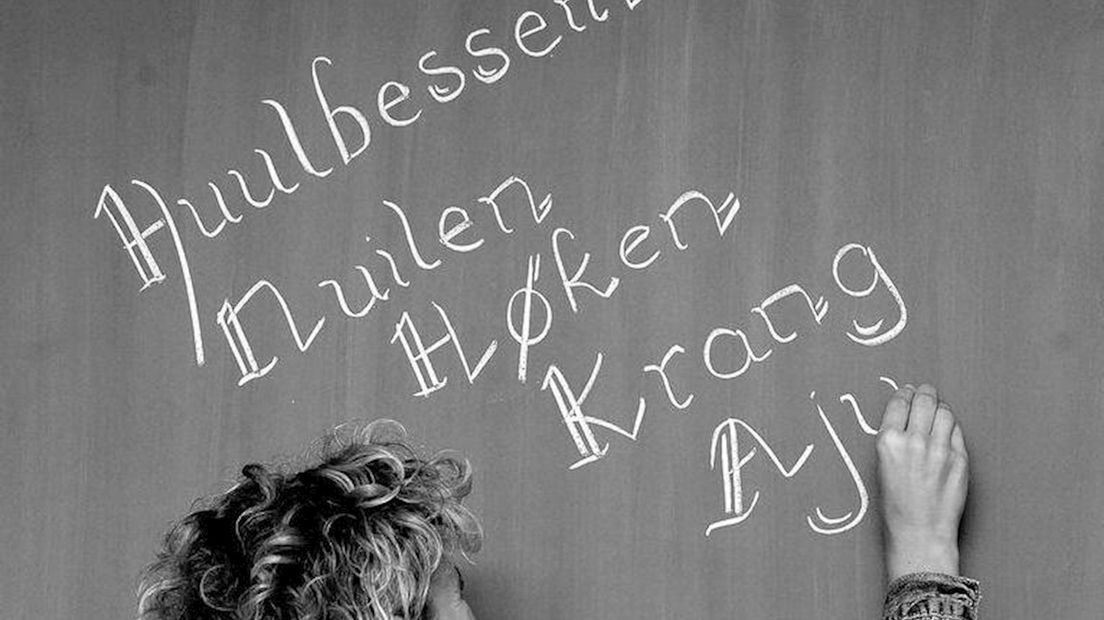 Huulbessem
Nuilen
Høken
Krang
Aju